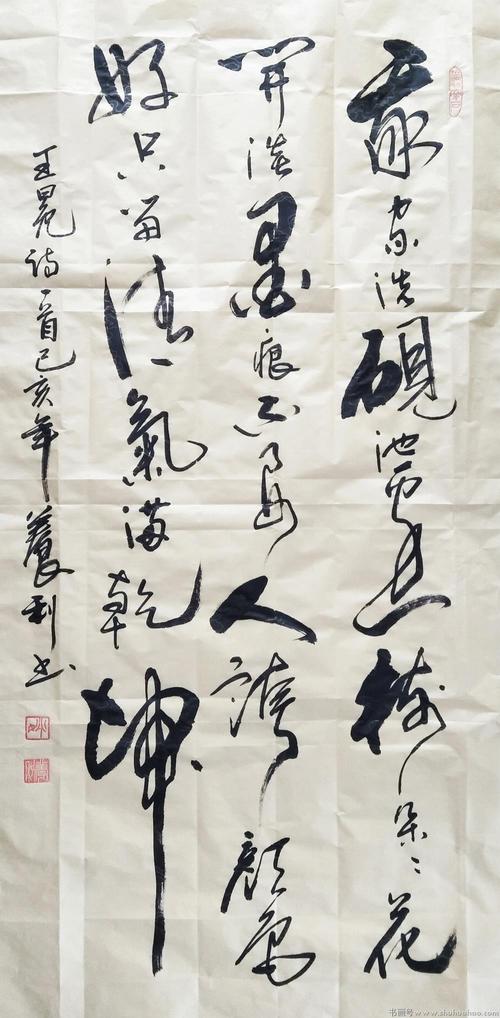 我家洗硯池邊樹朵〻花
開淡墨痕不要人誇顏色
好只留清氣滿乾坤
王冕詩一首己亥年養利书
书画号 www.shuhuahao.com